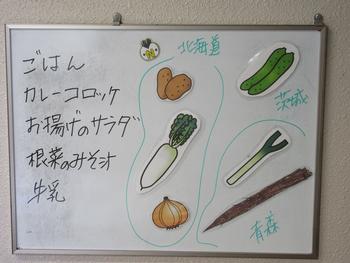 ごはん
カレーコロッケ
お揚げのサラダ
根菜のみそ汁
牛乳
北海道
茨城
青森